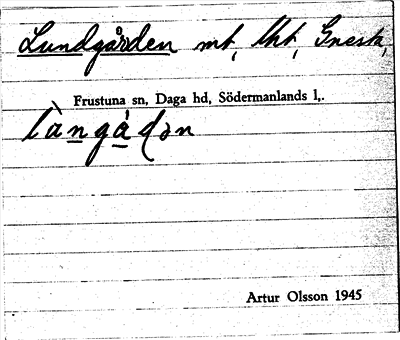 Lundgården mt, Kkt, Gnesta,
Frustuna sn, Daga hd, Södermanlands l,.
làngåḍən
Artur Olsson 1945